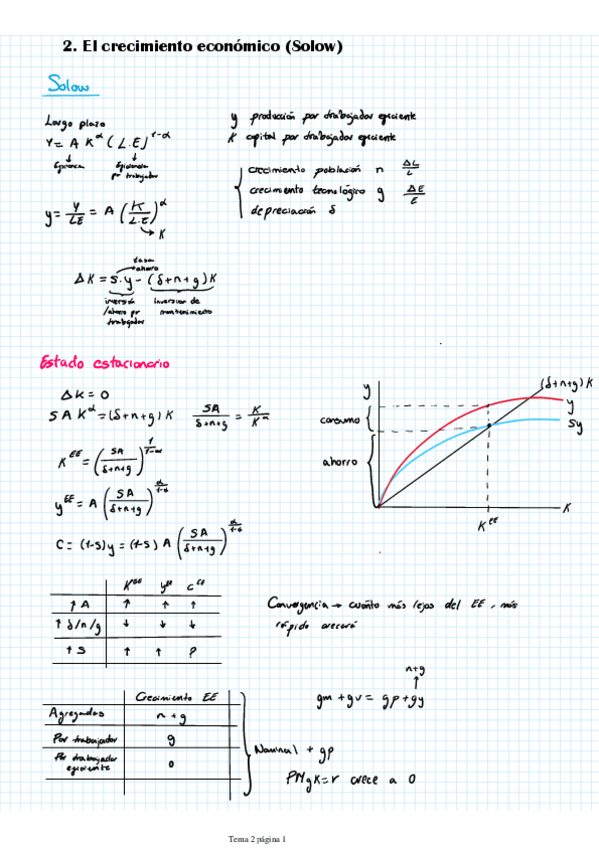 2. El crecimiento económico (Solow)
Solow
Largo plazo
Y = A K^α (L.E)^1-α
Eficiencia
pr trabajador
y = Y/LE = A (K/L.E)^α
→ K
y producción por trabajador eficiente
K capital por trabajador eficiente
crecimiento población n ΔL/L
crecimiento tecnológico g ΔE/E
depreciación δ
tasa
ahorro
ΔK = s.y - (δ+n+g)K
inversión
/ahorro pr
trabajador
inversion de
mantenimiento
Estado estacionario
ΔK = 0
S A K^α = (δ+n+g) K SA/δ+n+g = K/K^α
K^EE = (SA/δ+n+g)^1/1-α
y^EE = A (SA/δ+n+g)^α/1-α
C = (1-s)y = (1-s) A (SA/δ+n+g)^α/1-α
y
consumo
ahorro
(δ+n+g)K
y
sy
K
K^EE
K^EE y^EE c^EE
↑ A ↑ ↑ ↑
↑ δ/n/g ↓ ↓ ↓
↑ S ↑ ↑ ?
Convergencia → cuánto más lejos del EE, más
rápido crecerá
Crecimiento EE
Agregados n + g
Por trabajador g
Por trabajador
eficiente 0
Nominal + gp
n+g
↑
gm + gv = gp + gy
PMgK = r crece a 0
Tema 2 página 1